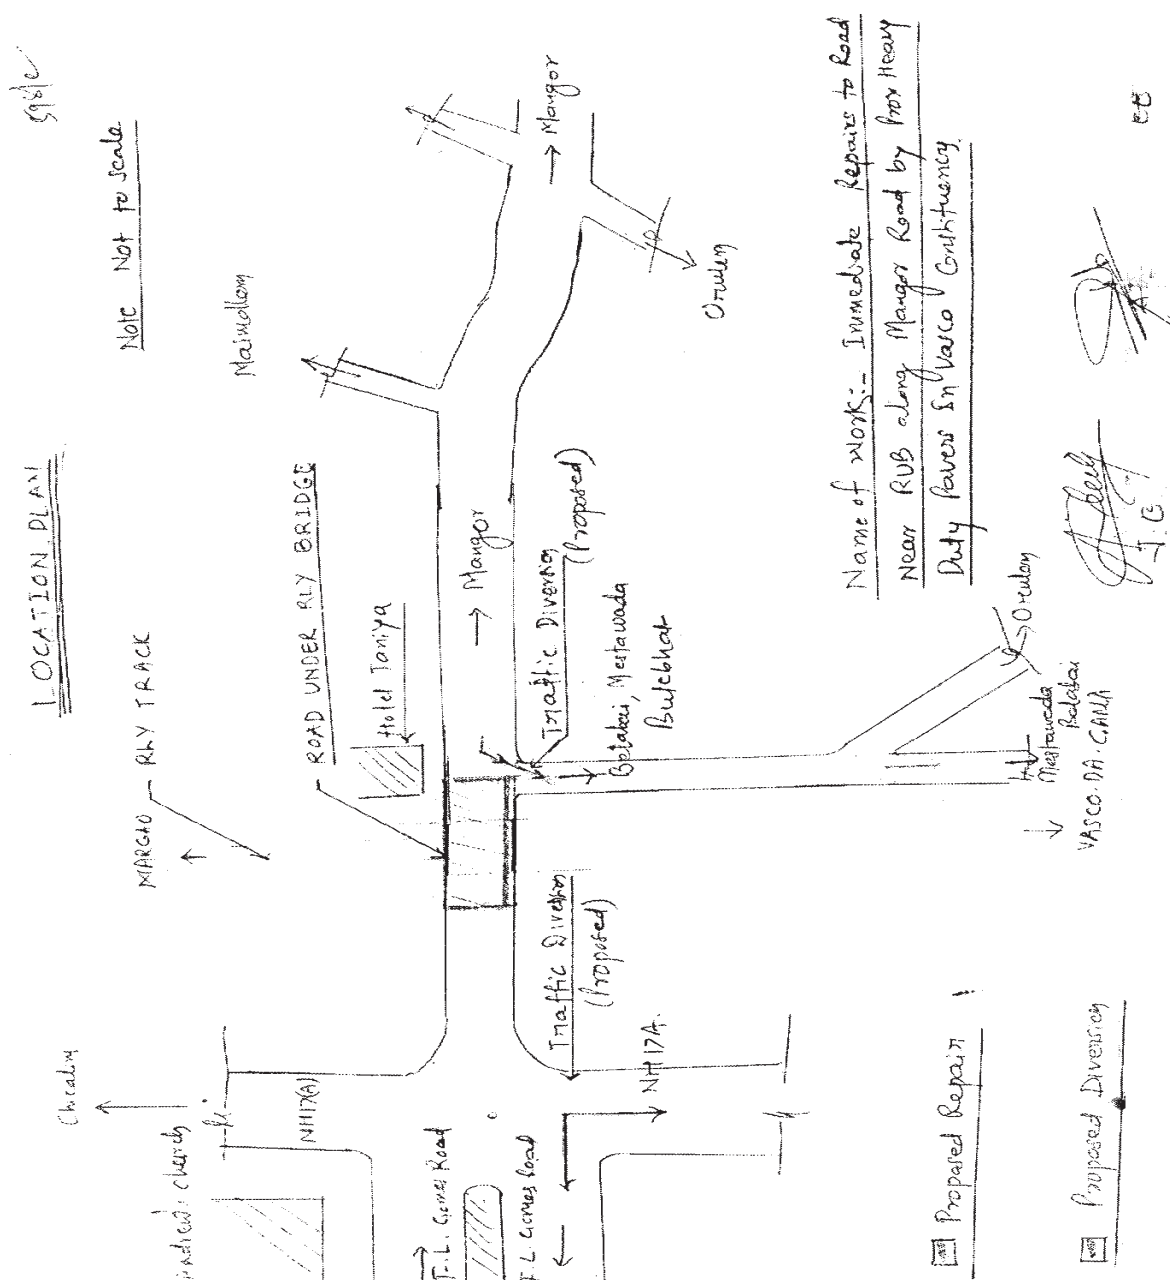 LOCATION PLAN
Note Not to scale
MARGAO
RLY TRACK
ROAD UNDER RLY BRIDGE
Hotel Taniya
Maimollem
→ Mangor
→ Mangor
Orulem
Traffic Diversion
(Proposed)
Belabai, Mestawada
Butebhat
Traffic Diversion
(Proposed)
Chicalim
NH17(A)
NH17A.
church
F.L. Gomes Road
F.L. Gomes Road
Orulem
Mestawada
Belabai
VASCO.DA.GAMA
Name of work:- Immediate Repairs to Road
Near RUB along Mangor Road by Prov Heavy
Duty Pavers In Vasco Constituency
Proposed Repair
Proposed Diversion
J.E
EE